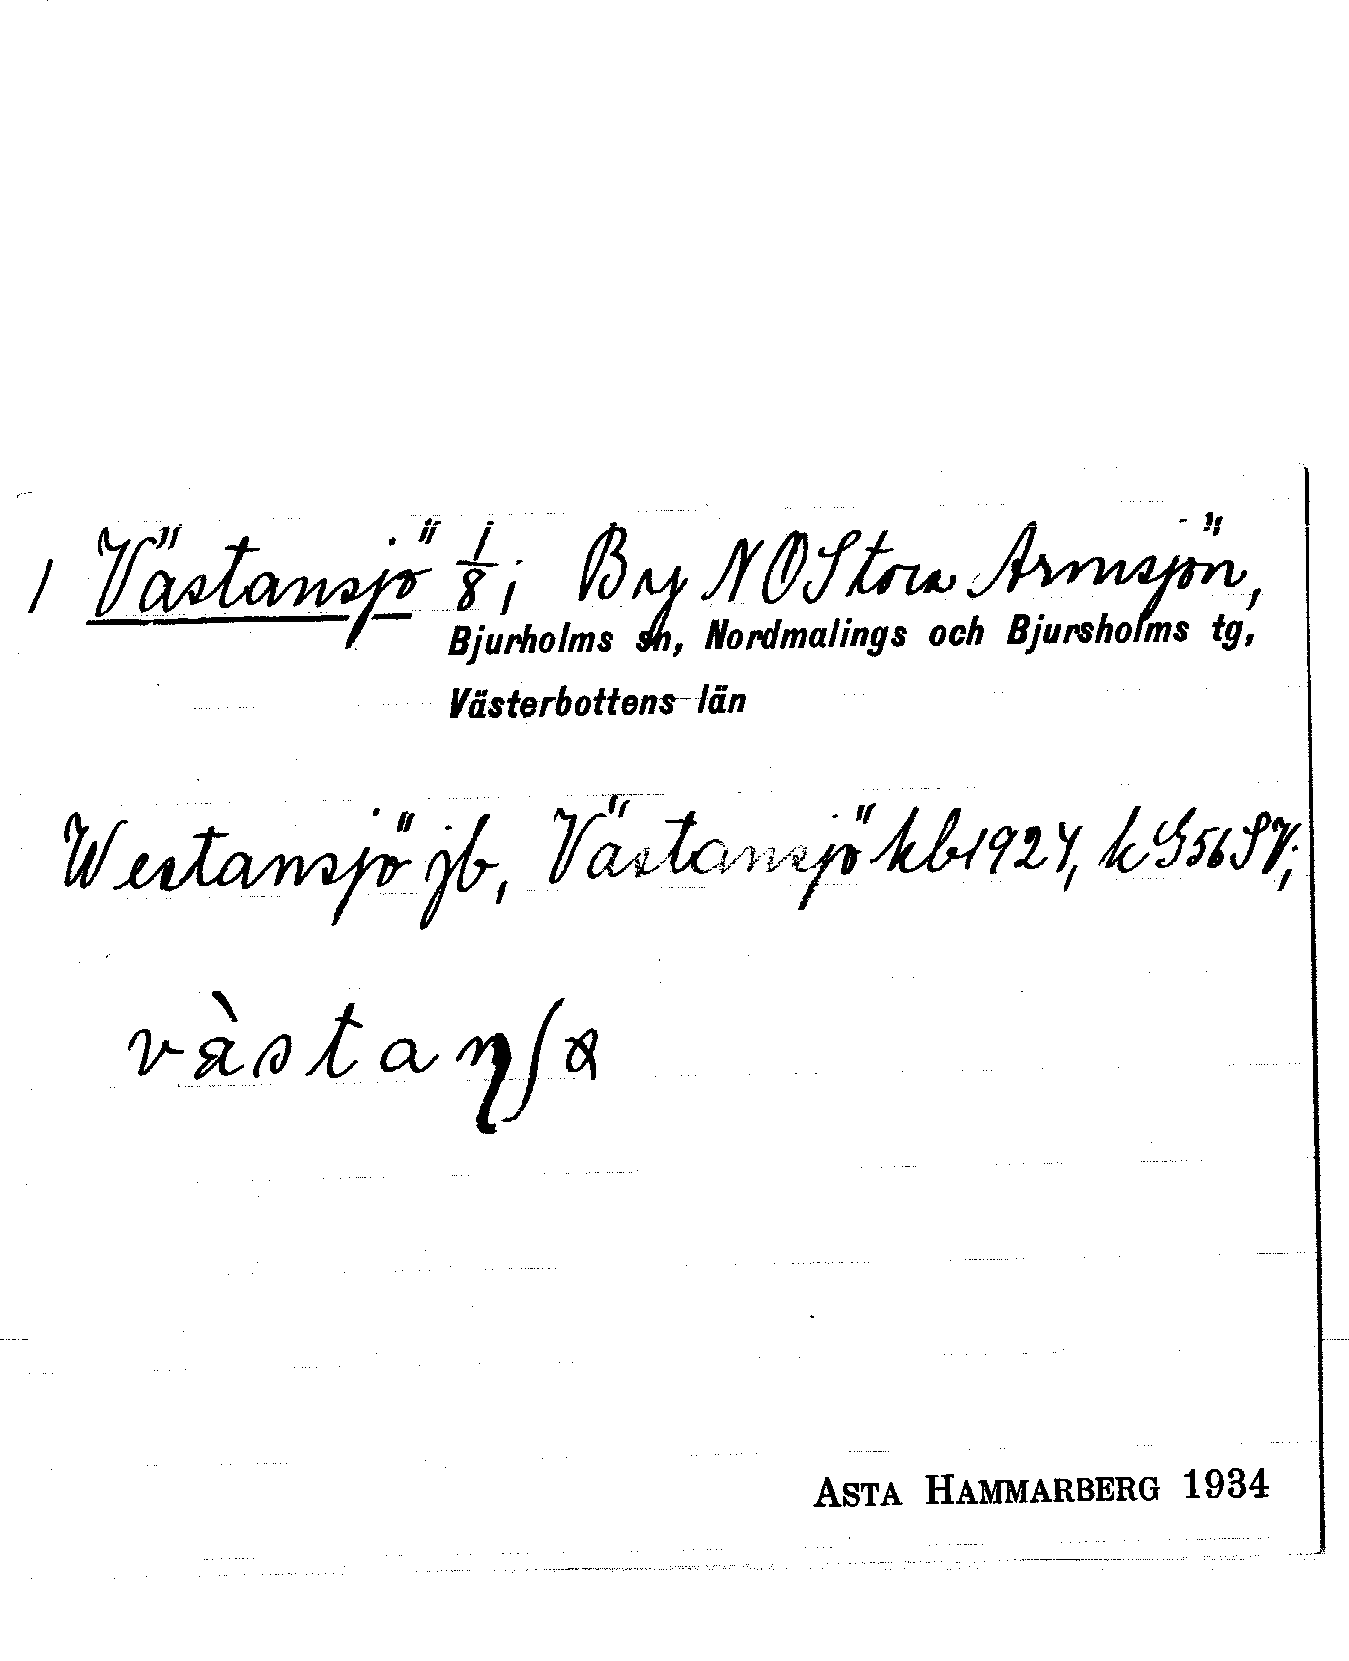 / Västansjö 1/8; By NO Stora Armsjön,
Bjurholms sn, Nordmalings och Bjursholms tg,
Västerbottens län
Westansjö jb, Västansjö kb 1924, k G56SV;
vàstaŋʃ
ASTA HAMMARBERG 1934